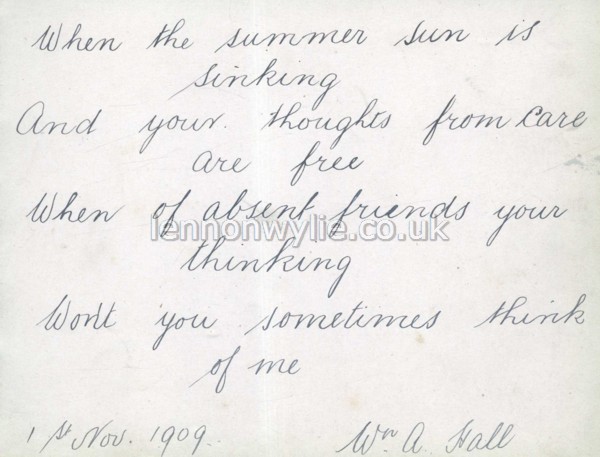 When the summer sun is
sinking
And your thoughts from care
are free
When of absent friends your
lennonwylie.co.uk
thinking
Wont you sometimes think
of me
1st Nov. 1909.
Wm A. Hall